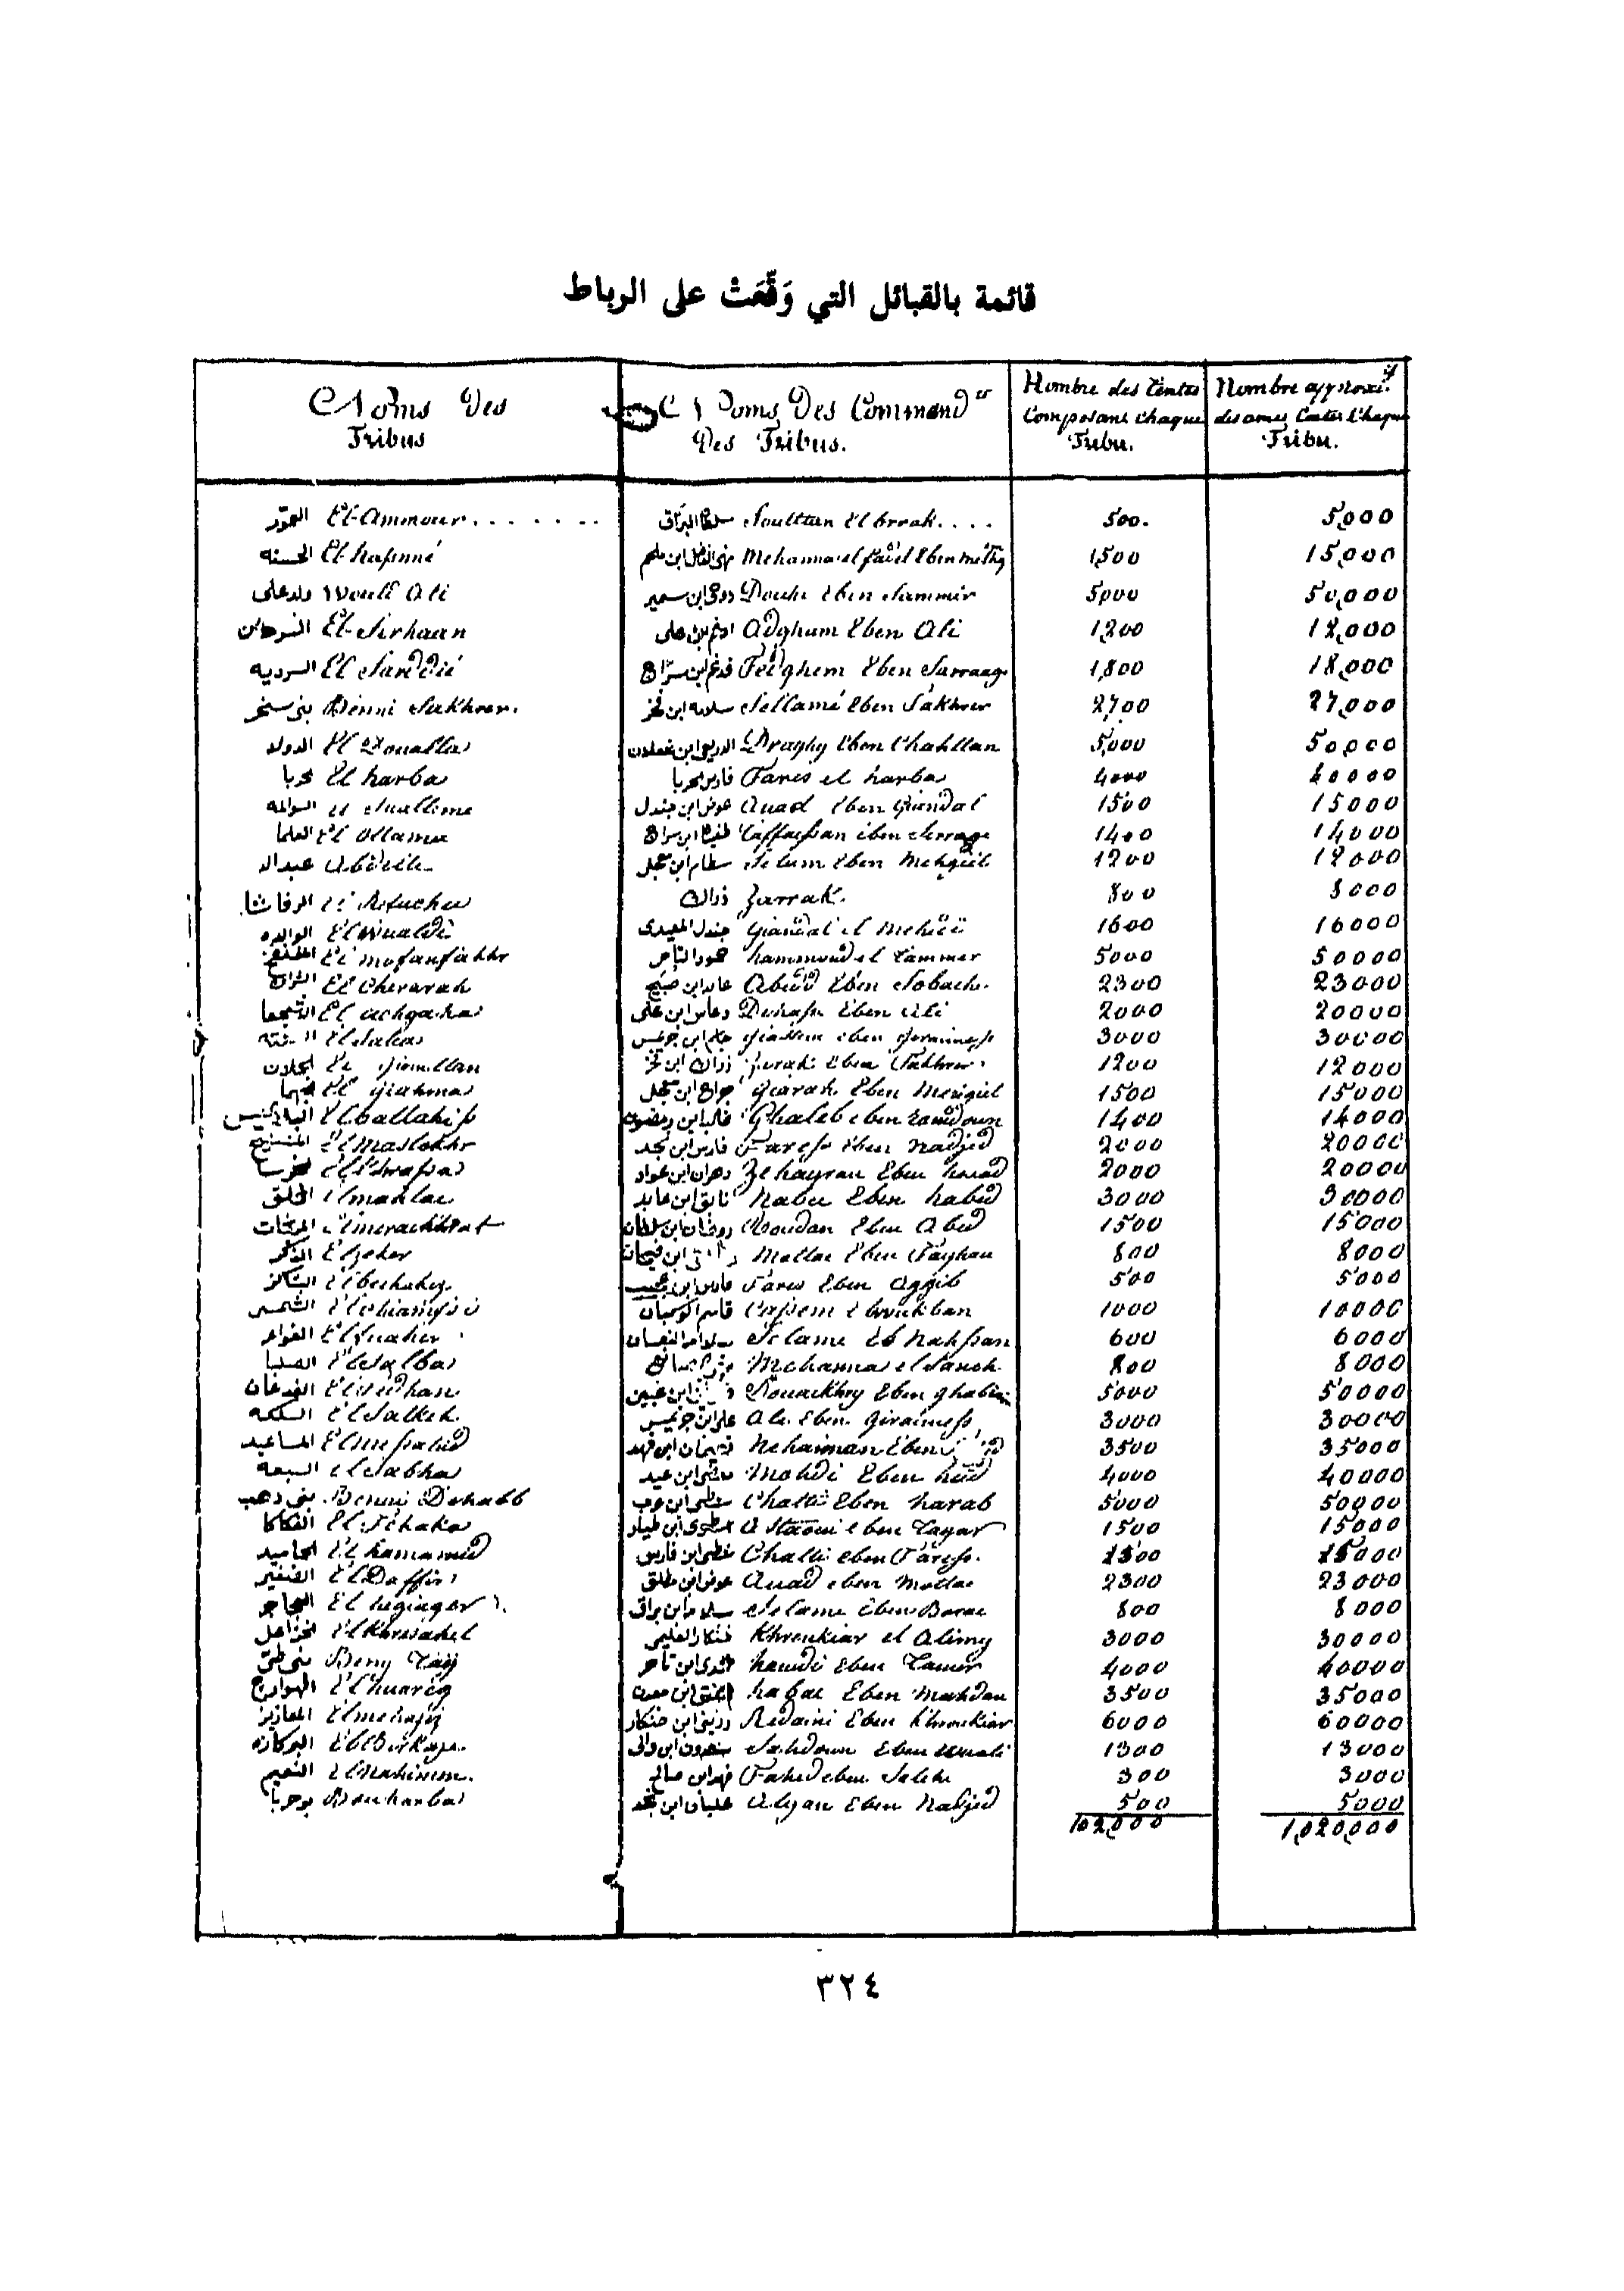 قائمة بالقبائل التي وَقَّعَتْ على الرباط
Noms Des Tribus
Noms Des Command.rs Des Tribus.
Nombre des Tentes Composans Chaque Tribu.
Nombre approxi.if des ames Chaque Tribu.
El-Ammour....... سلطان البراق Soulttan El brrak.... 500. 5,000
الحسنه El-hassnné مهنا الفاضل ابن ملحم Mehanna el fadel Eben 1,500 15,000
ولد على Would Ali دوحى ابن سمير Douhi Eben Sammir 5,000 50,000
El-Sirhaan ادغم ابن على Adgham Eben Ali 1,200 12,000
السرديه El Sarddié فدغم ابن سراج Fedghem Eben Sarraage 1,800 18,000
بنى سخر Benni Sakhrer. سلامه ابن فخر Sellamé Eben Fakhrer 2,700 27,000
الدولا El Doualla الدريعى ابن شعلان Draghy Eben Chahllan 5,000 50,000
خربا El harba فارس خربا Fares el harba 4000 40000
السوالمه El Suallime عوض ابن جندل Auad Eben Giandal 1500 15000
العلما El Ollama ابن سراج Eben Serrage 1400 14000
عبدالله Abdelle سطام ابن معجل Selum Eben Mehgiel 1200 12000
الرفاشا El Rifucha زراك Zarrak. 800 8000
الوالده El Wualdi جندل المعيدى Giandal el Mehidi 1600 16000
El mofanfakhr حمود التامر hammoud el Tammer 5000 50000
الشرارح El Cherarah عابد ابن صبيح Abed Eben Sobach. 2300 23000
الاشجعا El achgaha دعاس ابن على Duhass Eben Ali 2000 20000
El Salca جاسم ابن جرينس Giassem eben 3000 30000
الجملان El Giomllan زراك ابن فخر Zarak Eben Fakhrer. 1200 12000
El Giahma جراح ابن معجل Giarah Eben Mehgiel 1500 15000
El ballahiss غالب ابن رمضون Ghaleb eben Ramdoun 1400 14000
El Maslokhr فارس ابن نجد Faress Eben Nadjed 2000 20000
El Khrassa دهران ابن عواد Zehayran Eben Auad 2000 20000
المحلق El mahlac نابق ابن عابد Nabec Eben habed 3000 30000
المريخات El meraikhrat روضان ابن سلطان Roudan Eben Abed 1500 15000
الذكر El zeker Motlac Eben Fayhan 800 8000
البشاكز El bechakez فارس ابن عجيب Fares Eben Aggib 500 5000
الشمسى El chiamssi قاسم الوكبان Cassem El 1000 10000
الفواعر El fuaher سلامه النعسان Selame El Nahssan 600 6000
الصلبا El Salba Mohanna el Saneh 800 8000
الفدعان El fedhan ابن غبين Douackhry Eben ghabin 5000 50000
السلكه El Salkeh. على ابن جرينس Ali Eben. Giraimess 3000 30000
المساعيد El mussahid نهيمان ابن فهد Nehaiman Eben 3500 35000
السبعه el Sabha ماضى ابن عيد Mahdi Eben hedd 4000 40000
بنى دهب Benni Dehabb شطى ابن عرب Chatti Eben harab 5000 50000
الفكاكا El Fehaka اسطوى ابن طيار Astaoui eben Tayar 1500 15000
الحاميد El hamamid شطى ابن فارس Chatti eben Faress. 1500 15000
الضفير El Daffir عوض ابن مطلق Auad eben Motlac 2300 23000
الحجاجر El hegiager سلامه ابن براق Selame Eben Barac 800 8000
الخزاعل El Khrezahel خنكار العليمى Khrenkiar el Alimy 3000 30000
بنى طى Beny Tay حمدى ابن تامر hamdi Eben Tamer 4000 40000
الهوارج El huareg Eben Mahdan 3500 35000
المعازيز El mehaziz ردينى ابن خنكار Redaini Eben Khrenkiar 6000 60000
البركازه El Berkaze. سعدون ابن والى Sahdoun Eben Uuali 1300 13000
النعيم El Nahimm. فهد ابن صالح Fahed eben Saleh 300 3000
بوحربا Bouharba عليان ابن نجد Alyan Eben Nadjed 500 5000
102,000 1,020,000
٣٢٤